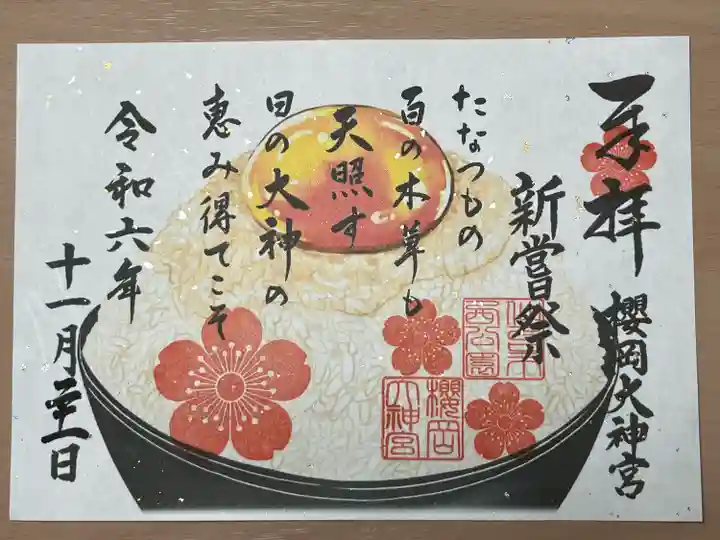 奉拝
櫻岡大神宮
新嘗祭
たなつもの
百の木草も
天照す
日の大神の
恵み得てこそ
令和六年
十一月二十一日
仙台
西公園
櫻岡
大神宮